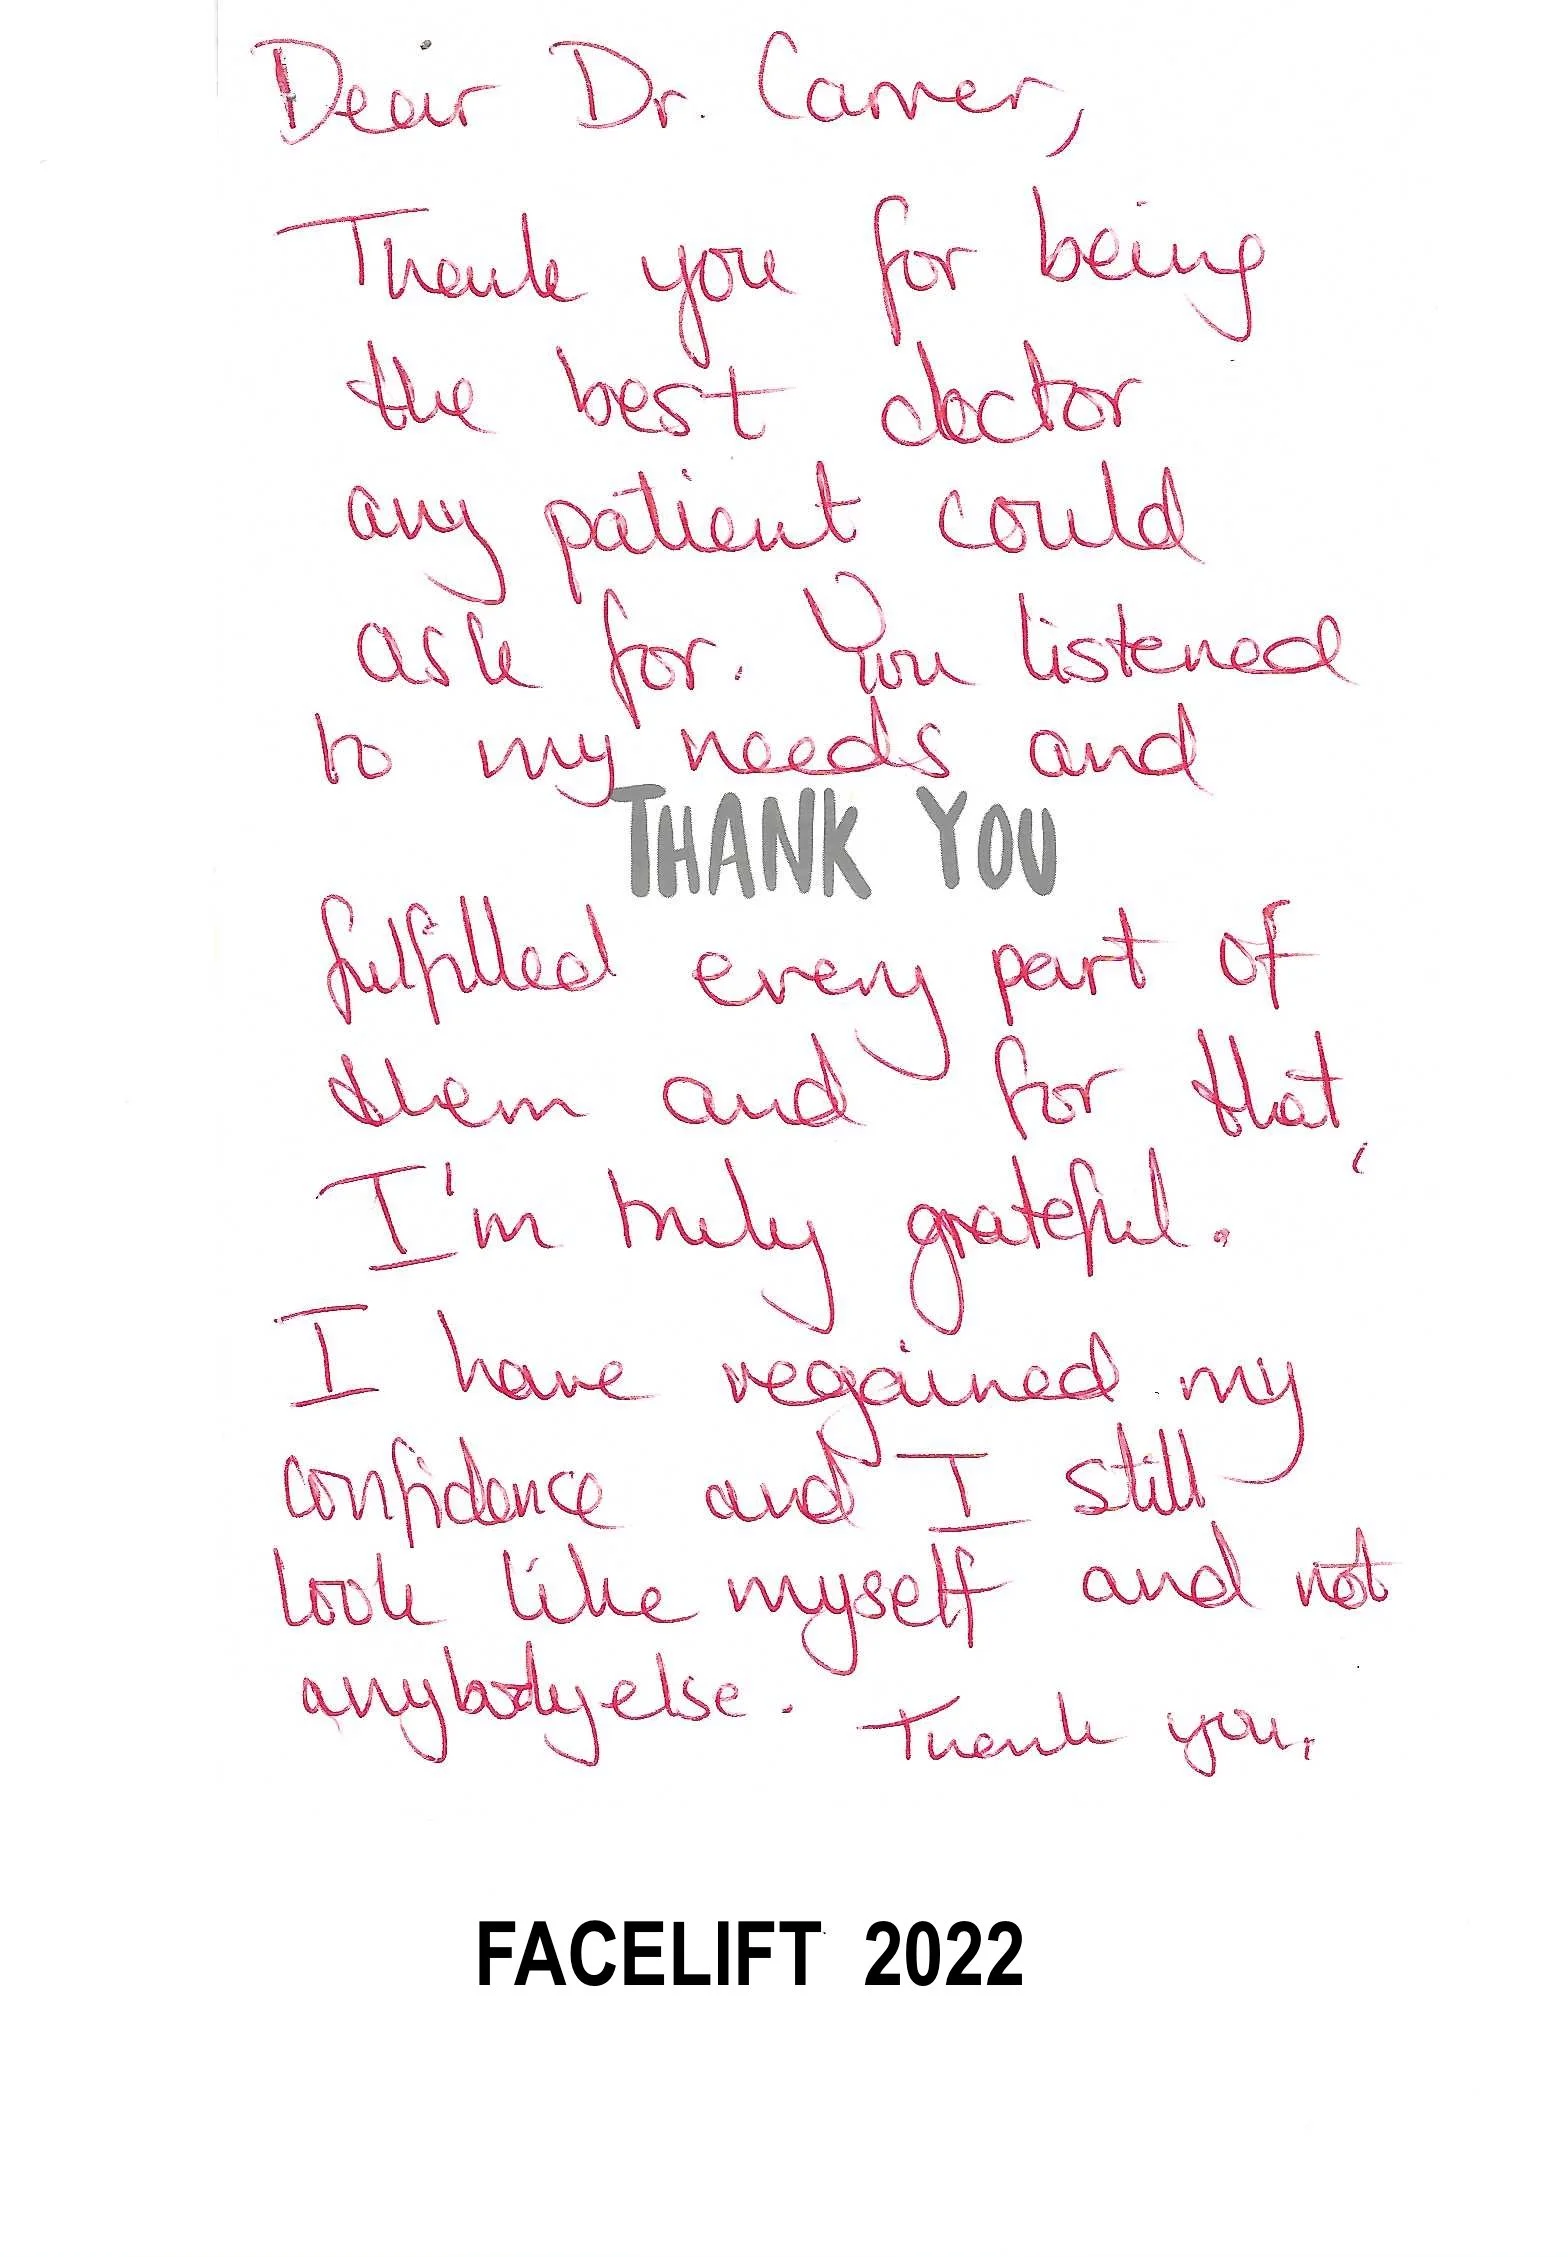 Dear Dr. Carver,
Thank you for being
the best doctor
any patient could
ask for. You listened
to my needs and
THANK YOU
fulfilled every part of
them and for that,
I'm truly grateful.
I have regained my
confidence and I still
look like myself and not
anybody else. Thank you.
FACELIFT 2022